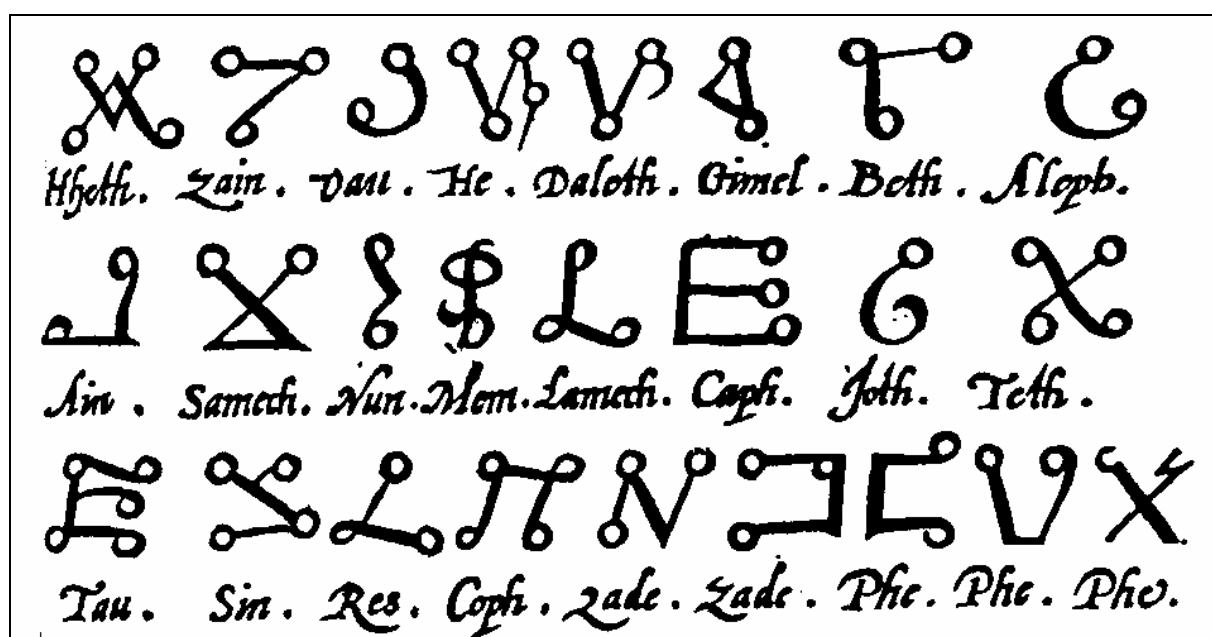 Hheth. Zain. Vau. He. Daleth. Gimel. Beth. Aleph.
Ain. Samech. Nun. Mem. Lamech. Caph. Joth. Teth.
Tau. Sin. Res. Coph. Zade. Zade. Phe. Phe. Phe.